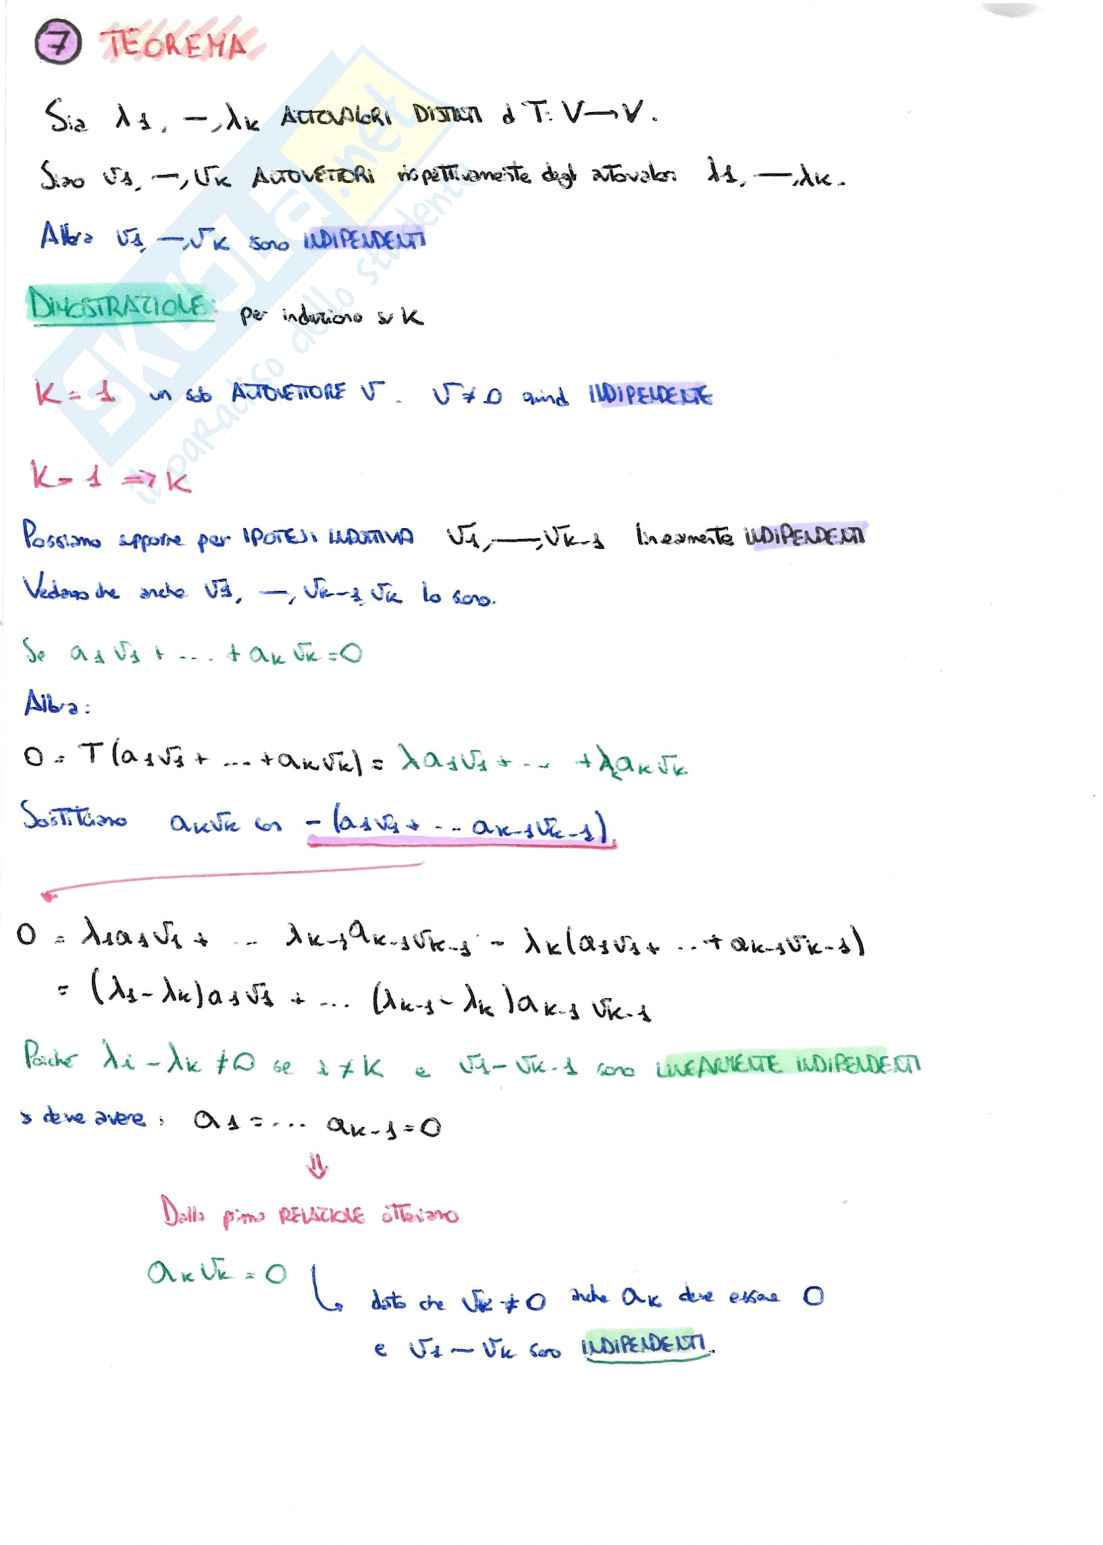 7 TEOREMA
Sia λ1, —, λk AUTOVALORI DISTINTI d T: V→V.
Siano v1, —, vk AUTOVETTORI rispettivamente degli autovalori λ1, —, λk.
Allora v1, —, vk sono INDIPENDENTI
DIMOSTRAZIONE: per induzione su K
K = 1 un solo AUTOVETTORE v. v ≠ 0 quindi INDIPENDENTE
K-1 => K
Possiamo supporre per IPOTESI INDUTTIVA v1, —, vk-1 linearmente INDIPENDENTI
Vediamo che anche v1, —, vk-1, vk lo sono.
Se a1v1 + ... + akvk = 0
Allora:
0 = T(a1v1 + ... + akvk) = λa1v1 + ... + λkakvk
Sostituiamo akvk con -(a1v1 + ... ak-1vk-1).
0 = λ1a1v1 + ... λk-1ak-1vk-1 - λk(a1v1 + ... + ak-1vk-1)
= (λ1-λk)a1v1 + ... (λk-1 - λk)ak-1 vk-1
Poiché λi - λk ≠ 0 se i ≠ K e v1 - vk-1 sono LINEARMENTE INDIPENDENTI
si deve avere: a1 = ... ak-1 = 0
⇓
Dalla prima RELAZIONE otteniamo
akvk = 0
dato che vk ≠ 0 anche ak deve essere 0
e v1 — vk sono INDIPENDENTI.
SKUOLA.net
il paradiso dello studente